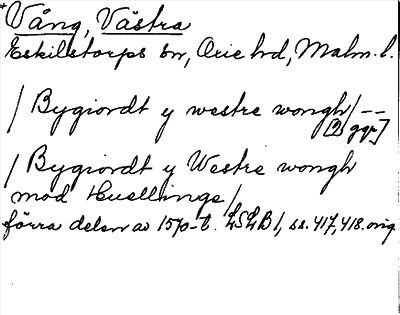 *Vång, Västra
Eskilstorps sn, Oxie hd, Malm. l.
/ Bygiordt y westre wongh / --
[2 ggr]
/ Bygiordt y Westre wongh
mod Huellinge /
förra delen av 1570-t. LSLB 1, ss. 417, 418. orig